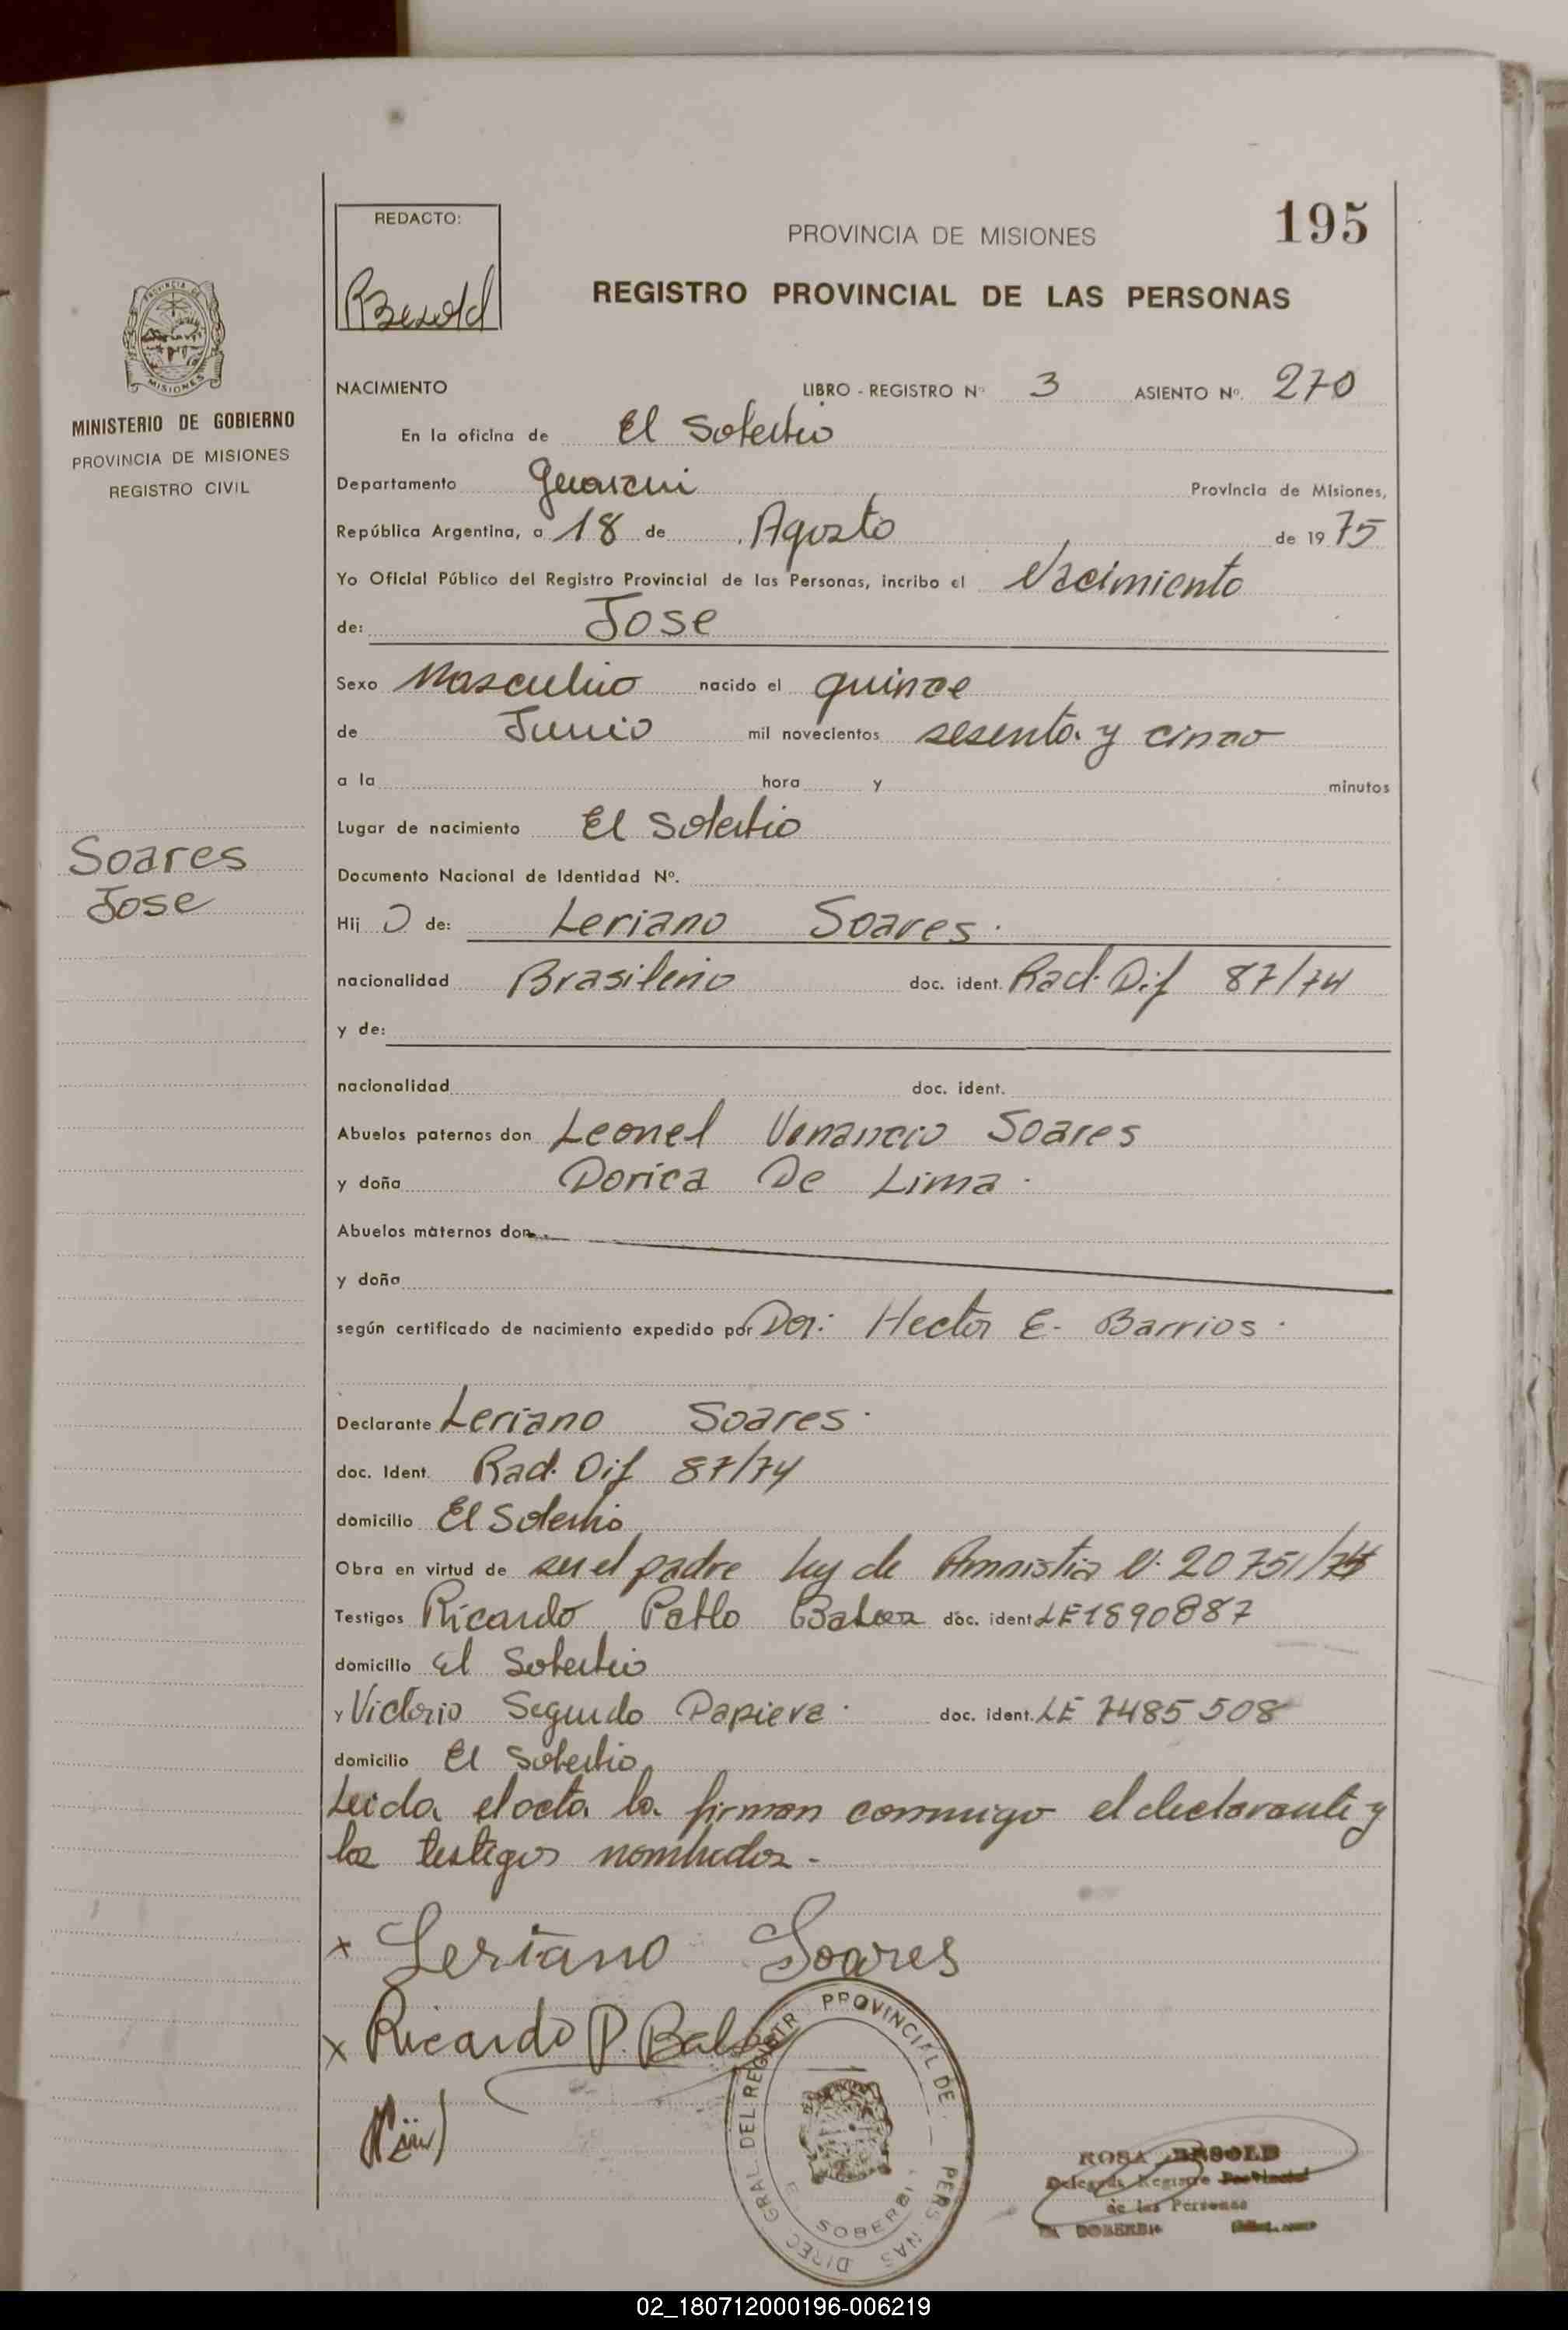 REDACTO:
PROVINCIA DE MISIONES
195
RBesold
REGISTRO PROVINCIAL DE LAS PERSONAS
PROVINCIA DE
MISIONES
MINISTERIO DE GOBIERNO
PROVINCIA DE MISIONES
REGISTRO CIVIL
NACIMIENTO LIBRO - REGISTRO Nº 3 ASIENTO Nº. 270
En la oficina de El Soberbio
Departamento Guarani Provincia de Misiones,
República Argentina, a 18 de Agosto de 1975
Yo Oficial Público del Registro Provincial de las Personas, incribo el Nacimiento
de: Jose
Sexo Masculino nacido el quince
de Junio mil novecientos sesenta y cinco
a la hora y minutos
Lugar de nacimiento El Soberbio
Soares
Jose
Documento Nacional de Identidad Nº.
Hij o de: Leriano Soares.
nacionalidad Brasileño doc. ident. Rad. Dif 87/74
y de:
nacionalidad doc. ident.
Abuelos paternos don Leonel Venancio Soares
y doña Dorica De Lima.
Abuelos maternos don
y doña
según certificado de nacimiento expedido por Dor: Hector E. Barrios.
Declarante Leriano Soares.
doc. Ident. Rad. Dif 87/74
domicilio El Soberbio
Obra en virtud de ser el padre Ley de Amnistia N. 20751/74
Testigos Ricardo Pablo doc. ident. LE 1890887
domicilio El Soberbio
y Victorio Segundo Papieva. doc. ident. LE 7485508
domicilio El Soberbio
Leida el acta la firman conmigo el declarante y
los testigos nombrados.-
x Leriano Soares
x Ricardo P.
DIREC GRAL DEL REGISTR PROVINCIAL DE PERS NAS
SOBERBI
ROSA BESOLD
Delegada Registro Provincial
de las Personas
SOBERBI
02_180712000196-006219